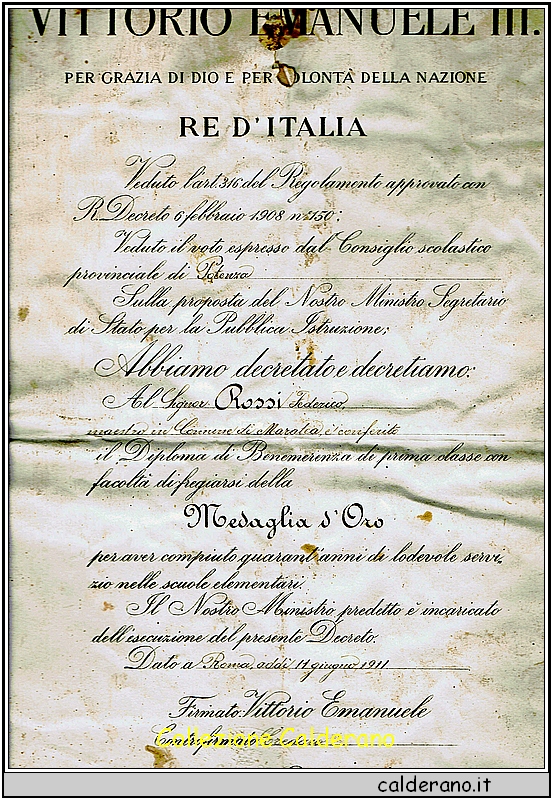 VITTORIO EMANUELE III.
PER GRAZIA DI DIO E PER VOLONTÀ DELLA NAZIONE
RE D'ITALIA
Veduto l'art. 316 del Regolamento approvato con
R. Decreto 6 febbraio 1908 n. 150;
Veduto il voto espresso dal Consiglio scolastico
provinciale di Potenza
Sulla proposta del Nostro Ministro Segretario
di Stato per la Pubblica Istruzione;
Abbiamo decretato e decretiamo:
Al Signor Rossi Federico,
maestro in Comune di Maratea è conferito
il Diploma di Benemerenza di prima classe con
facoltà di fregiarsi della
Medaglia d'Oro
per aver compiuto quarant'anni di lodevole servi-
zio nelle scuole elementari.
Il Nostro Ministro predetto è incaricato
dell'esecuzione del presente Decreto.
Dato a Roma, addì 11 giugno 1911
Firmato: Vittorio Emanuele
Controfirmato: Credaro
Collezione Calderano
calderano.it